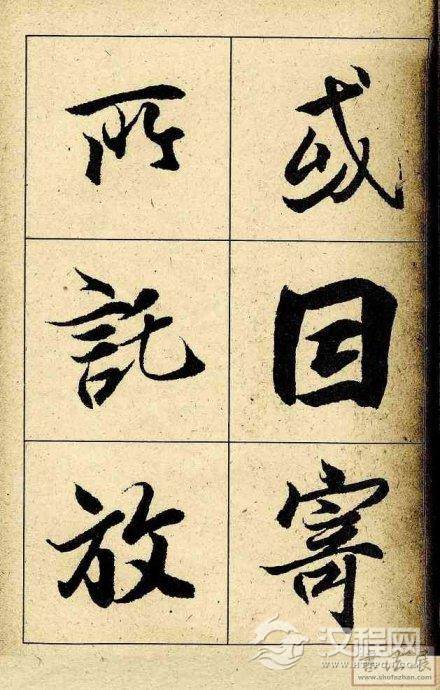 或因寄
所託放
汉程网
www.shufazhan.com